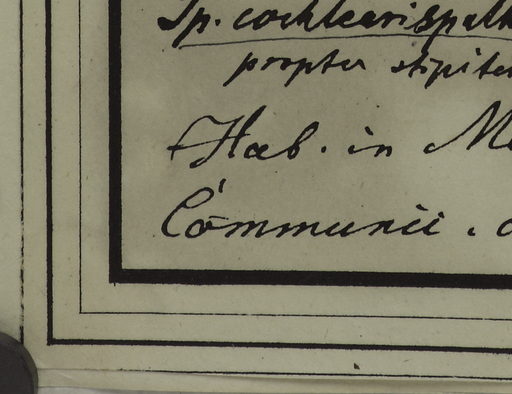 Sp. cochlearispath
propter stipite
Hab. in M
Communii.